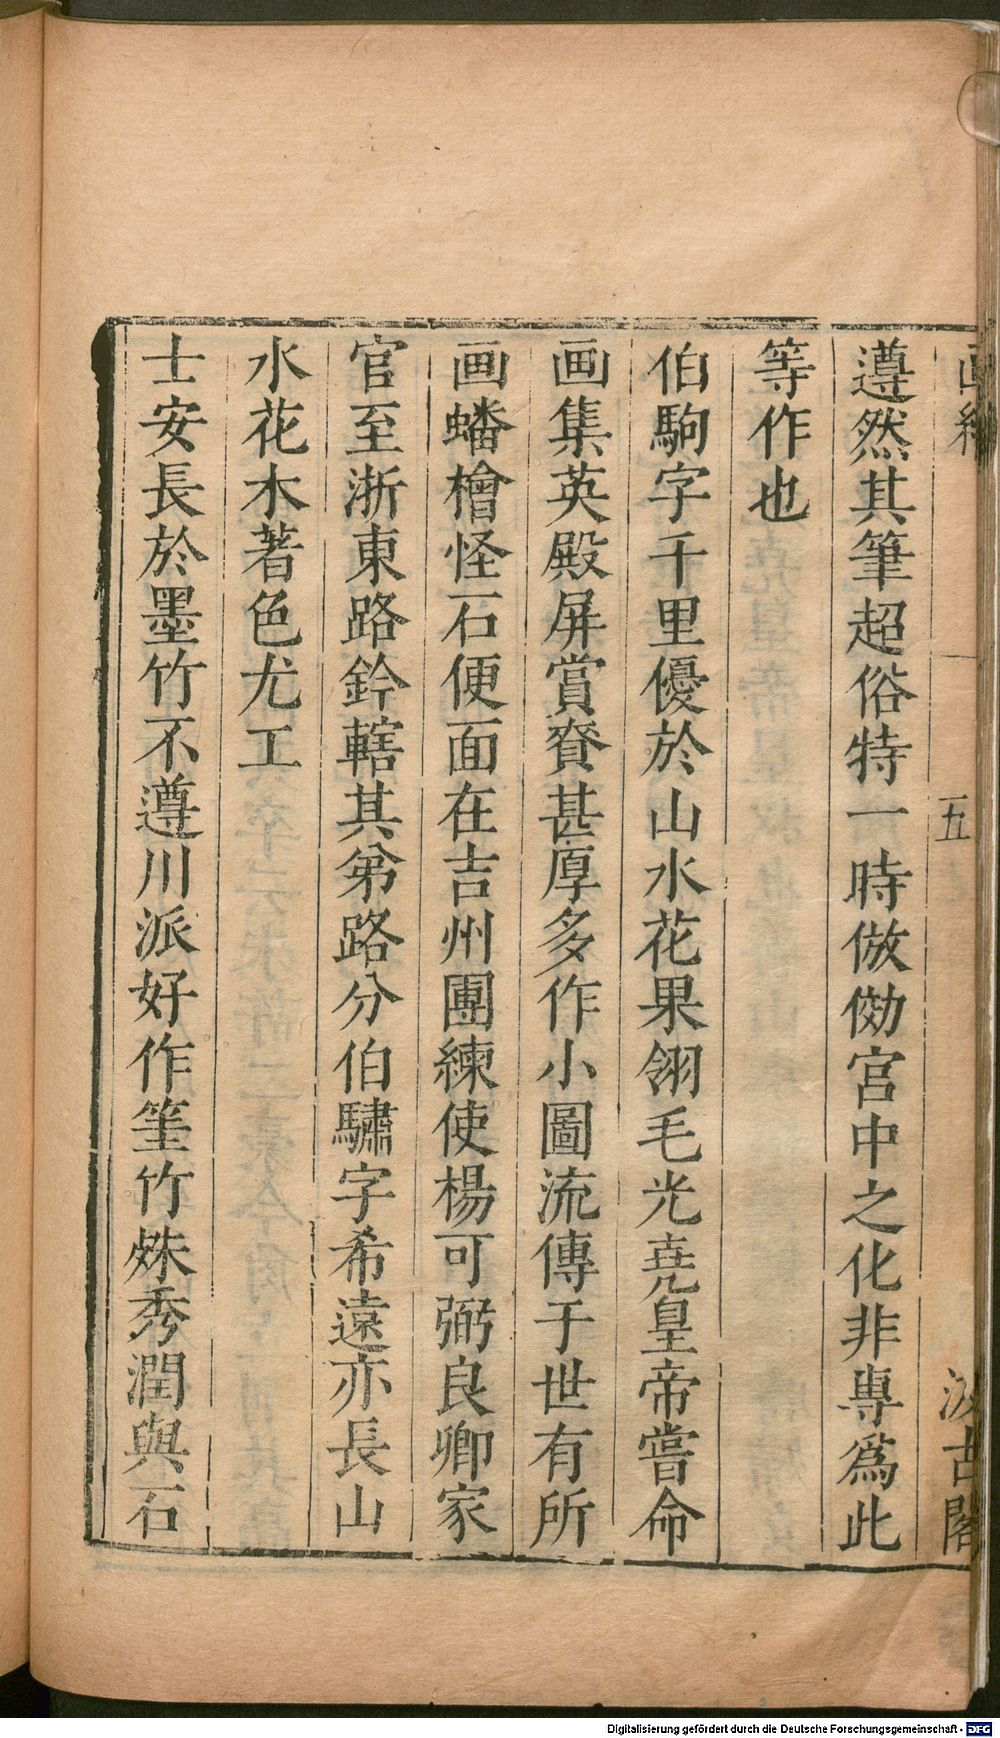 遵然其筆超俗特一時倣効宮中之化非專爲此
等作也
伯駒字千里優於山水花果翎毛光堯皇帝嘗命
画集英殿屏賞賚甚厚多作小圖流傳于世有所
画蟠檜怪石便面在吉州團練使楊可弼良卿家
官至浙東路鈐轄其弟路分伯驌字希遠亦長山
水花木著色尤工
士安長於墨竹不遵川派好作筀竹㷂秀潤與石
五
汲古閣
Digitalisierung gefördert durch die Deutsche Forschungsgemeinschaft - DFG